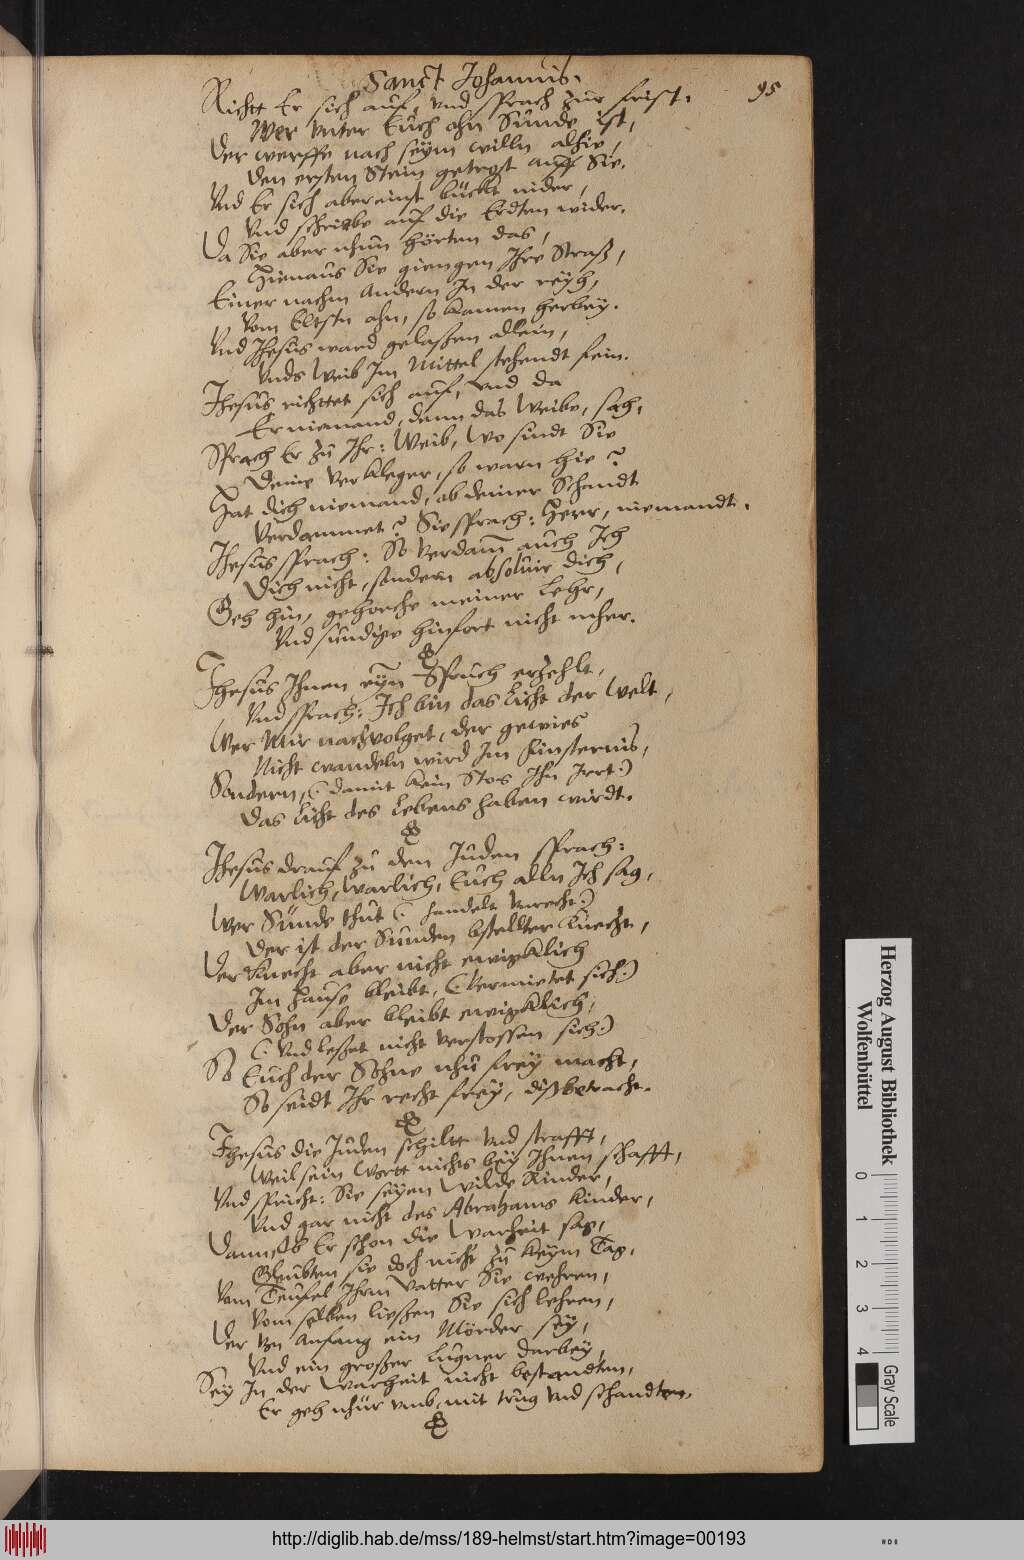 Sanct Johannis.
95
Richtt Er sich auf, vnd sprach zur frist.
Wer vnter Euch ohn Sünde ist,
Der werffe nach seÿm willn alhie,
Den ersten Stein getrost auff Sie.
Vnd Er sich abereinst bückt nider,
Vnd schriebe auf die Erdten wider.
Da Sie aber nhun hörten das,
Hienaus Sie giengen Ihre Straß,
Einer nachm Andern In der reÿh,
Vom Eltstn ahn, so kamen herbeÿ.
Vnd Jhesus ward gelaßen allein,
Vnds Weib Im Mittel stehendt fein.
Jhesus richttet sich auf, vnd da
Er niemand, denn das Weibe, sah,
Sprach Er zu Ihr: Weib, Wo sindt Sie
Deine Verkleger, so warn hie?
Hat dich niemand, ob deiner Schandt
Verdammet? Sie sprach: Herr, niemandt.
Jhesus sprach: So verdam̃ auch Ich
Dich nicht, sondern absoluir dich,
Geh hin, gehorche meiner Lehr,
Vnd sündige hinfort nicht mher.
Jhesus Ihnen eÿn Spruch erzehlt,
Vnd sprach: Ich bin das Licht der Welt,
Wer Mir nachvolget, der gewies
Nicht wandeln wird Im finsternis,
Sondern, (: damit kein Stos Ihn Irrt:)
Das Licht des Lebens haben wirdt.
Jhesus drauf zu den Juden sprach:
Warlich, Warlich, Euch alln Ich sag,
Wer Sünde thut (: handelt vnrecht:)
Der ist der Sünden bstellter Knecht,
Der Knecht aber nicht ewigklich
Im Hause bleibt, (: Vermietet sich:)
Der Sohn aber bleibt ewigklich,
(: Vnd leßet nicht verstossen sich:)
So Euch der Sohne nhu freÿ macht,
So seidt Ihr recht freÿ, diß betracht.
Jhesus die Juden schiltt vnd strafft,
Weil sein Wortt nichts beÿ Ihnen schafft,
Vnd spricht: Sie seÿen Wilde Rinder,
Vnd gar nicht des Abrahams Kinder,
Dann Ob Er schon die Warheit sag,
Gleubten sie doch nicht zu keÿm Tag,
Vom Teufel Ihrm Vatter Sie wehren,
Vom selben ließen Sie sich lehren,
Der von Anfang ein Mörder seÿ,
Vnd ein großer Lugner darbeÿ,
Seÿ In der Warheit nicht bestandten,
Er geh nhur vmb, mit trug vnd schandten.
Herzog August Bibliothek
Wolfenbüttel
0 1 2 3 4
Gray Scale
http://diglib.hab.de/mss/189-helmst/start.htm?image=00193